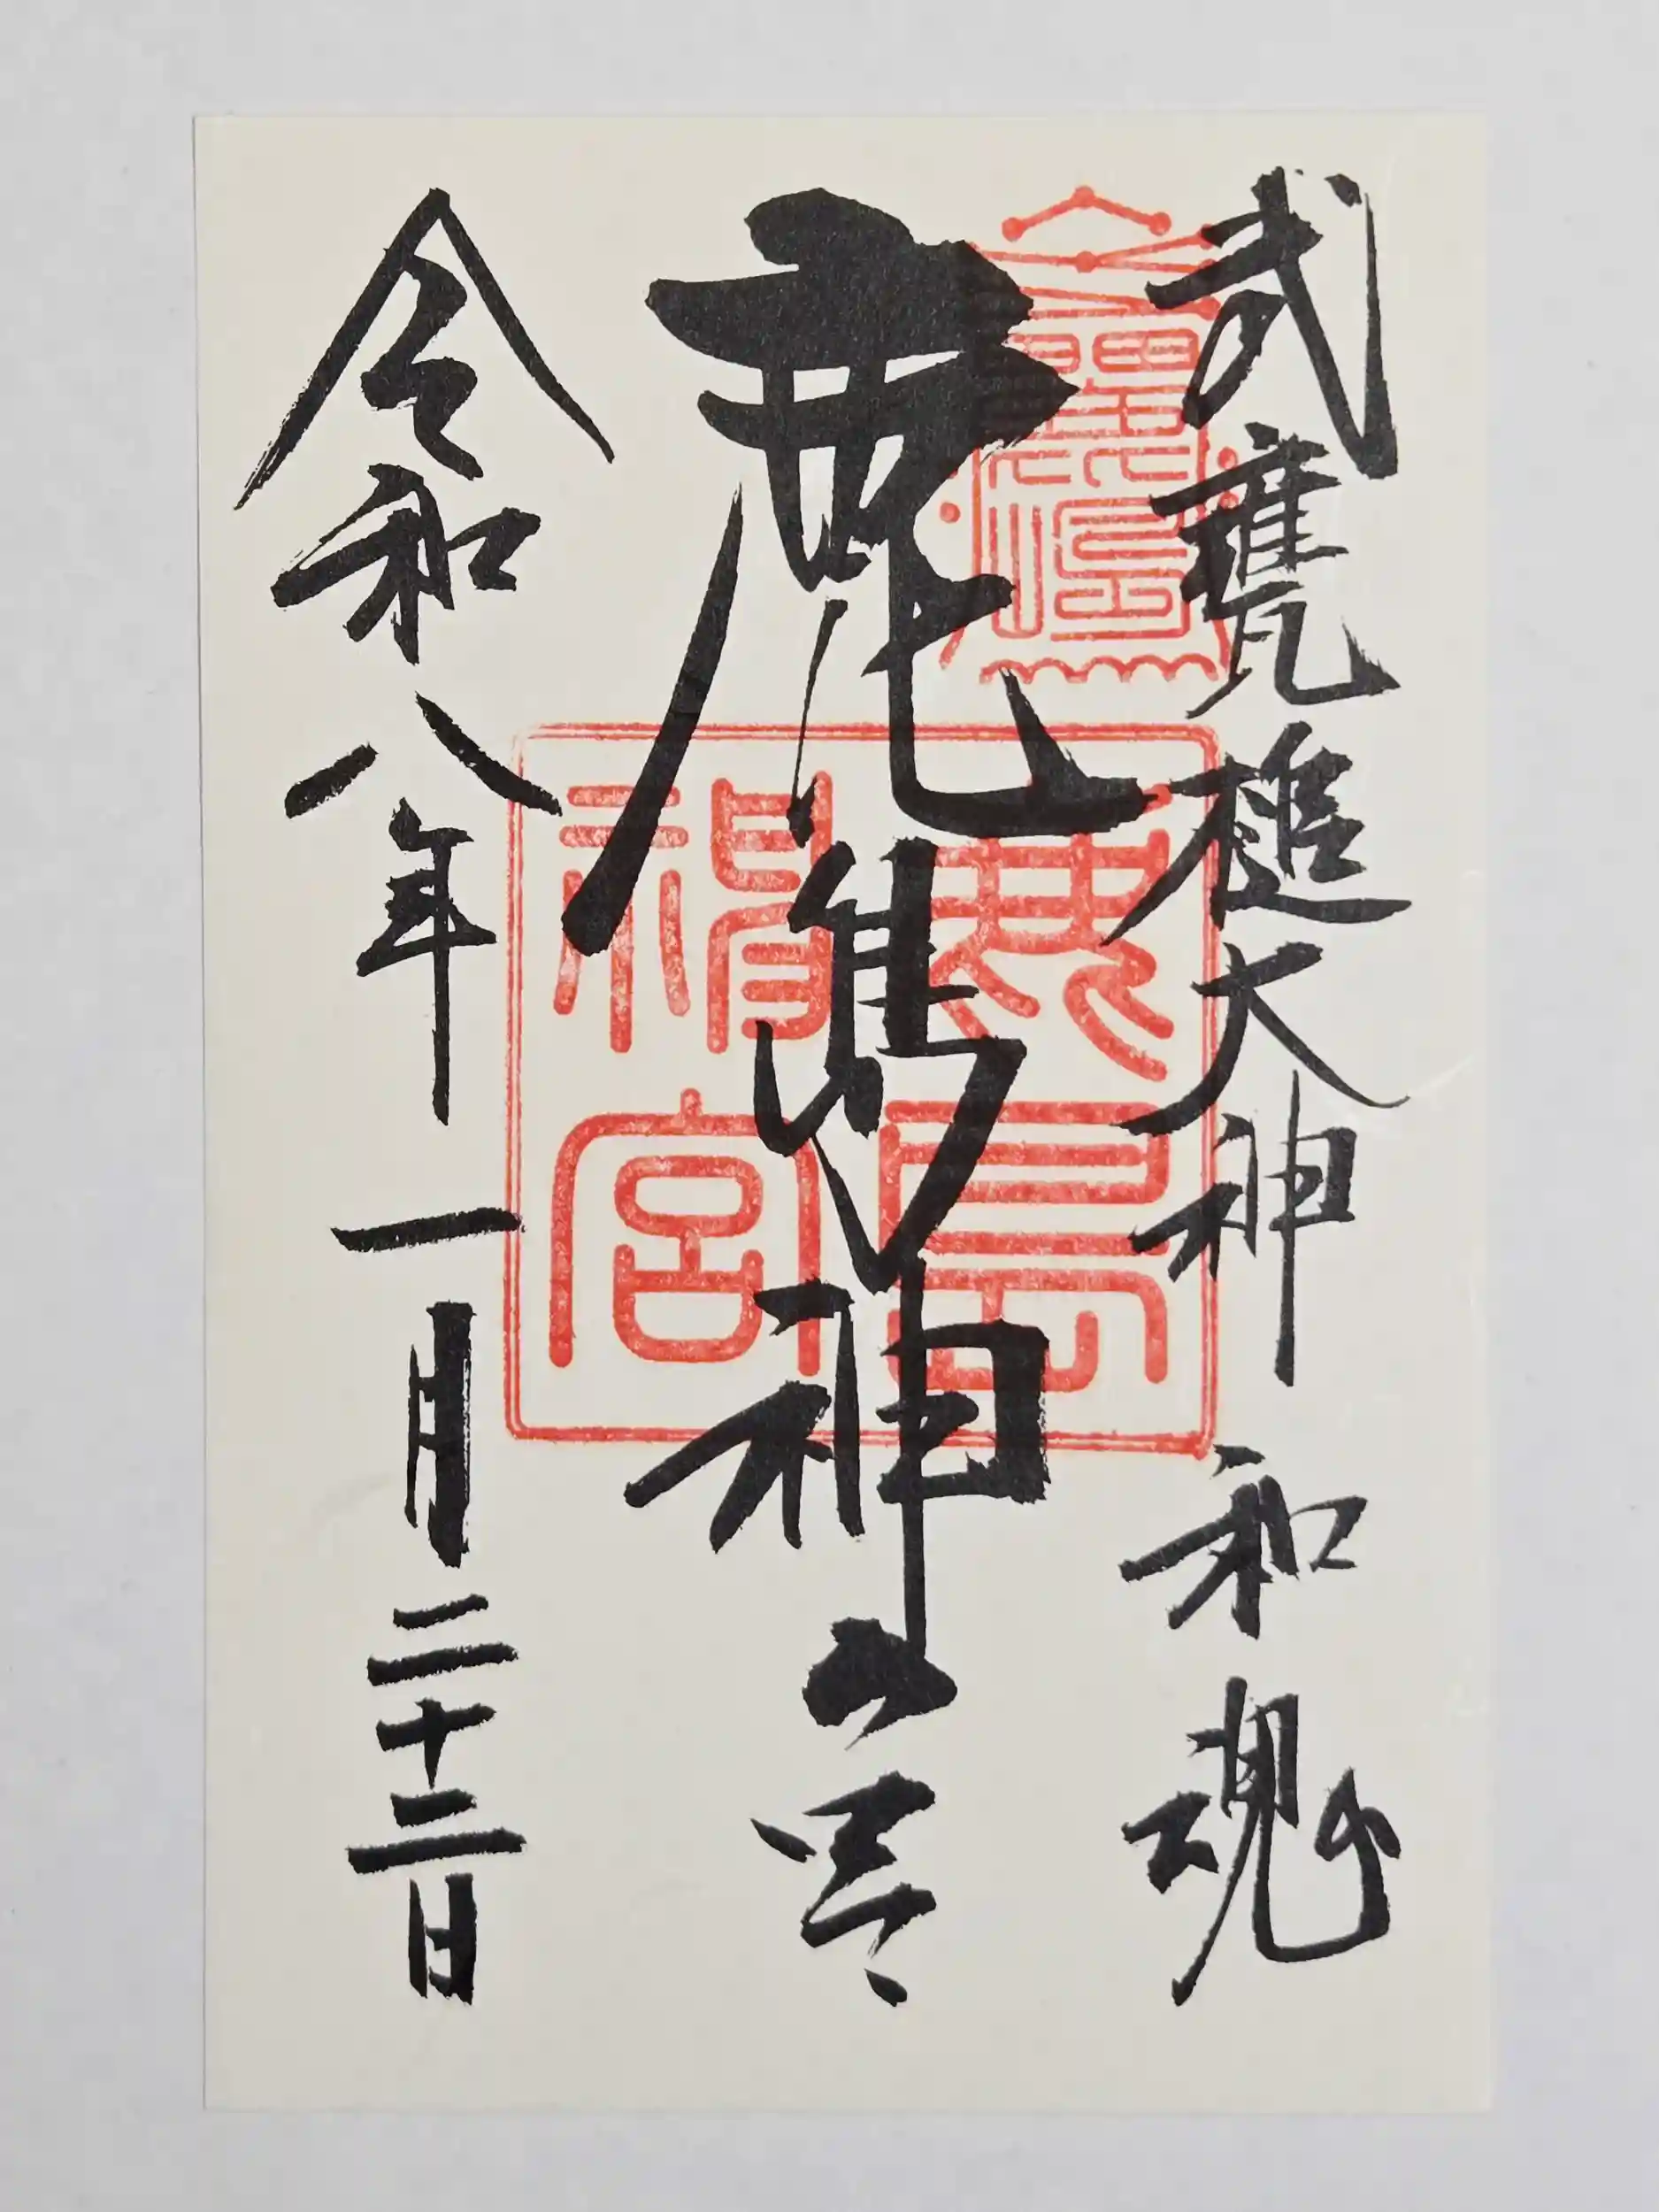 武甕槌大神 和魂
鹿島神宮
令和八年 一月二十二日
鹿島
神宮